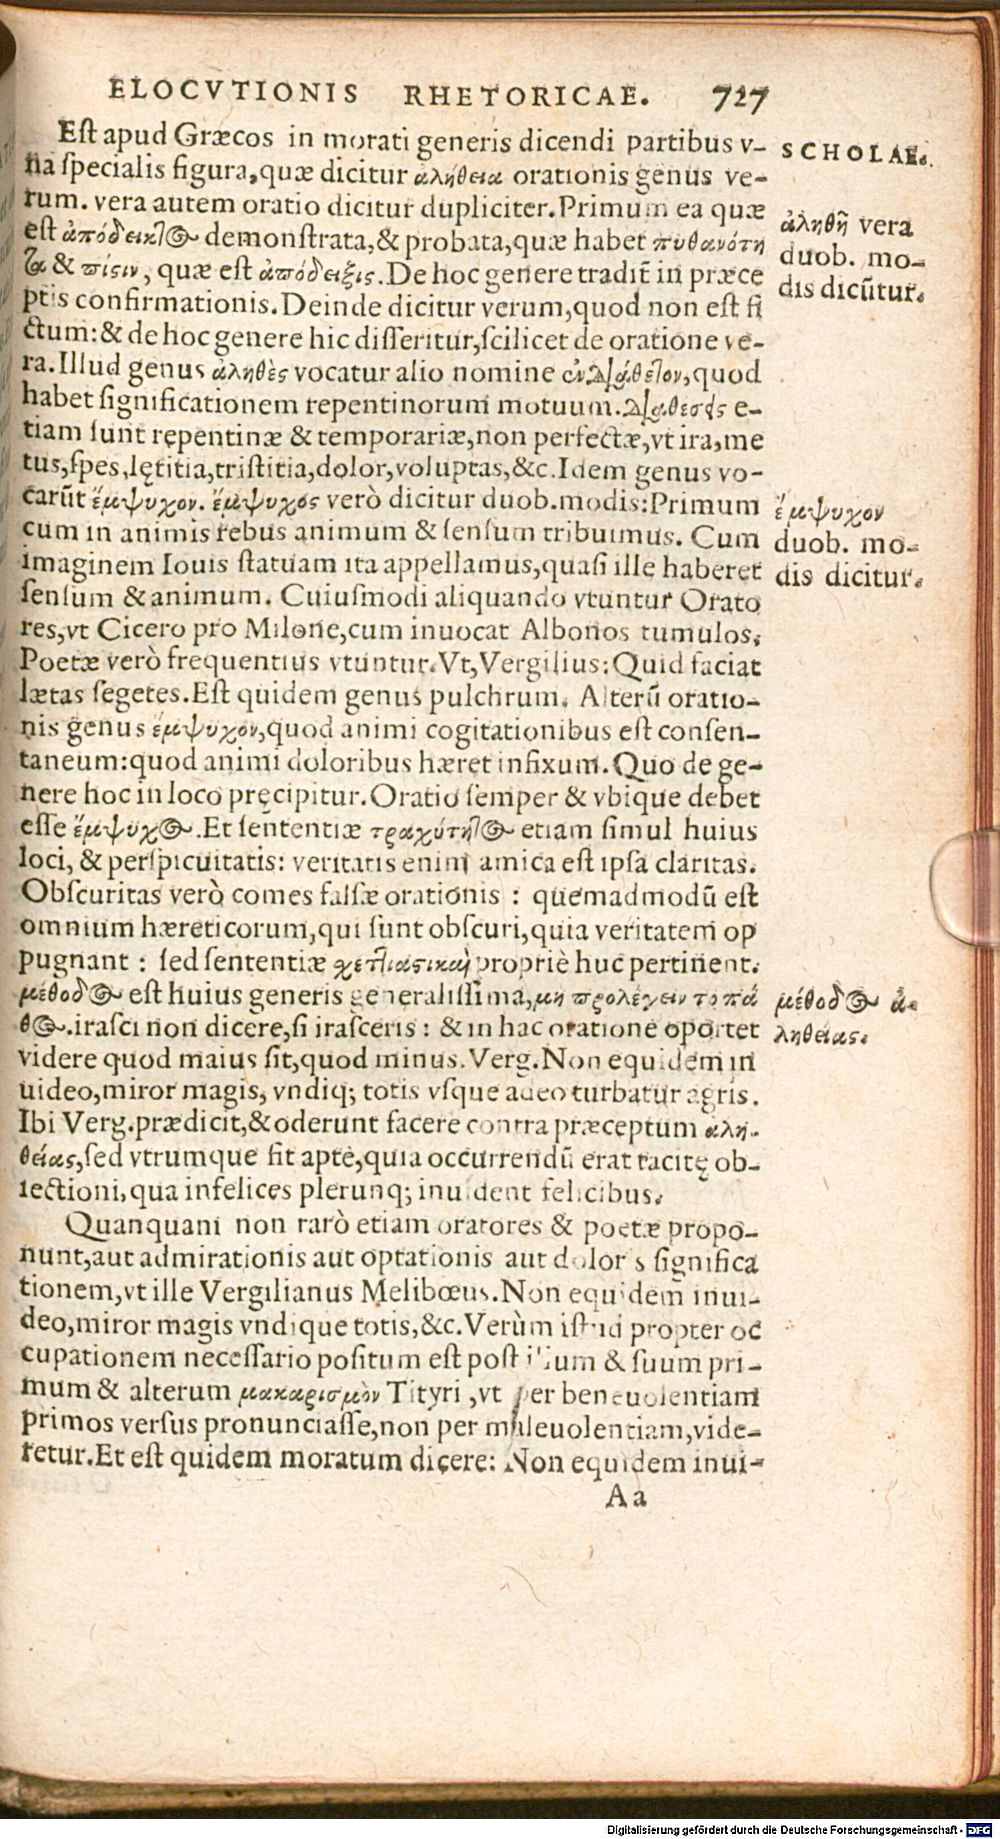 ELOCVTIONIS RHETORICAE. 727
Est apud Græcos in morati generis dicendi partibus v-
na specialis figura, quæ dicitur ἀλήθεια orationis genus ve-
rum. vera autem oratio dicitur dupliciter. Primum ea quæ
est ἀπόδεικτος demonstrata, & probata, quæ habet πιθανότη
τα & πίςιν, quæ est ἀπόδειξις. De hoc genere tradit̃ in præce
ptis confirmationis. Deinde dicitur verum, quod non est fi
ctum: & de hoc genere hic disseritur, scilicet de oratione ve-
ra. Illud genus ἀληθὲς vocatur alio nomine ἐνδιάθετον, quod
habet significationem repentinorum motuum. διάθεσις e-
tiam sunt repentinæ & temporariæ, non perfectæ, vt ira, me
tus, spes, lętitia, tristitia, dolor, voluptas, &c. Idem genus vo-
carũt ἔμψυχον. ἔμψυχος verò dicitur duob. modis: Primum
cum in animis rebus animum & sensum tribuimus. Cum
imaginem Iouis statuam ita appellamus, quasi ille haberet
sensum & animum. Cuiusmodi aliquando vtuntur Orato
res, vt Cicero pro Milone, cum inuocat Albonos tumulos.
Poetæ verò frequentius vtuntur. Vt, Vergilius: Quid faciat
lætas segetes. Est quidem genus pulchrum. Alterũ oratio-
nis genus ἔμψυχον, quod animi cogitationibus est consen-
taneum: quod animi doloribus hæret infixum. Quo de ge-
nere hoc in loco pręcipitur. Oratio semper & vbique debet
esse ἔμψυχος. Et sententiæ τραχύτητος etiam simul huius
loci, & perspicuitatis: veritatis enim amica est ipsa claritas.
Obscuritas verò comes falsæ orationis : quemadmodũ est
omnium hæreticorum, qui sunt obscuri, quia veritatem op
pugnant : sed sententiæ χετλιαςικαὶ propriè huc pertinent.
μέθοδος est huius generis generalissima, μὴ προλέγειν τὸ πά
θος. irasci non dicere, si irasceris : & in hac oratione oportet
videre quod maius sit, quod minus. Verg. Non equidem in
uideo, miror magis, vndiq; totis vsque adeo turbatur agris.
Ibi Verg. prædicit, & oderunt facere contra præceptum ἀλη-
θείας, sed vtrumque fit aptè, quia occurrendũ erat tacitę ob-
iectioni, qua infelices plerunq; inuident felicibus.
Quanquam non rarò etiam oratores & poetæ propo-
nunt, aut admirationis aut optationis aut doloris significa
tionem, vt ille Vergilianus Melibœus. Non equidem inui-
deo, miror magis vndique totis, &c. Verùm istud propter oc
cupationem necessario positum est post illum & suum pri-
mum & alterum μακαρισμὸν Tityri, vt per beneuolentiam
primos versus pronunciasse, non per maleuolentiam, vide-
retur. Et est quidem moratum dicere: Non equidem inui-
Aa
SCHOLAE.
ἀληθῆ vera
duob. mo-
dis dicũtur.
ἔμψυχον
duob. mo-
dis dicitur.
μέθοδος ἀ-
ληθείας.
Digitalisierung gefördert durch die Deutsche Forschungsgemeinschaft - DFG